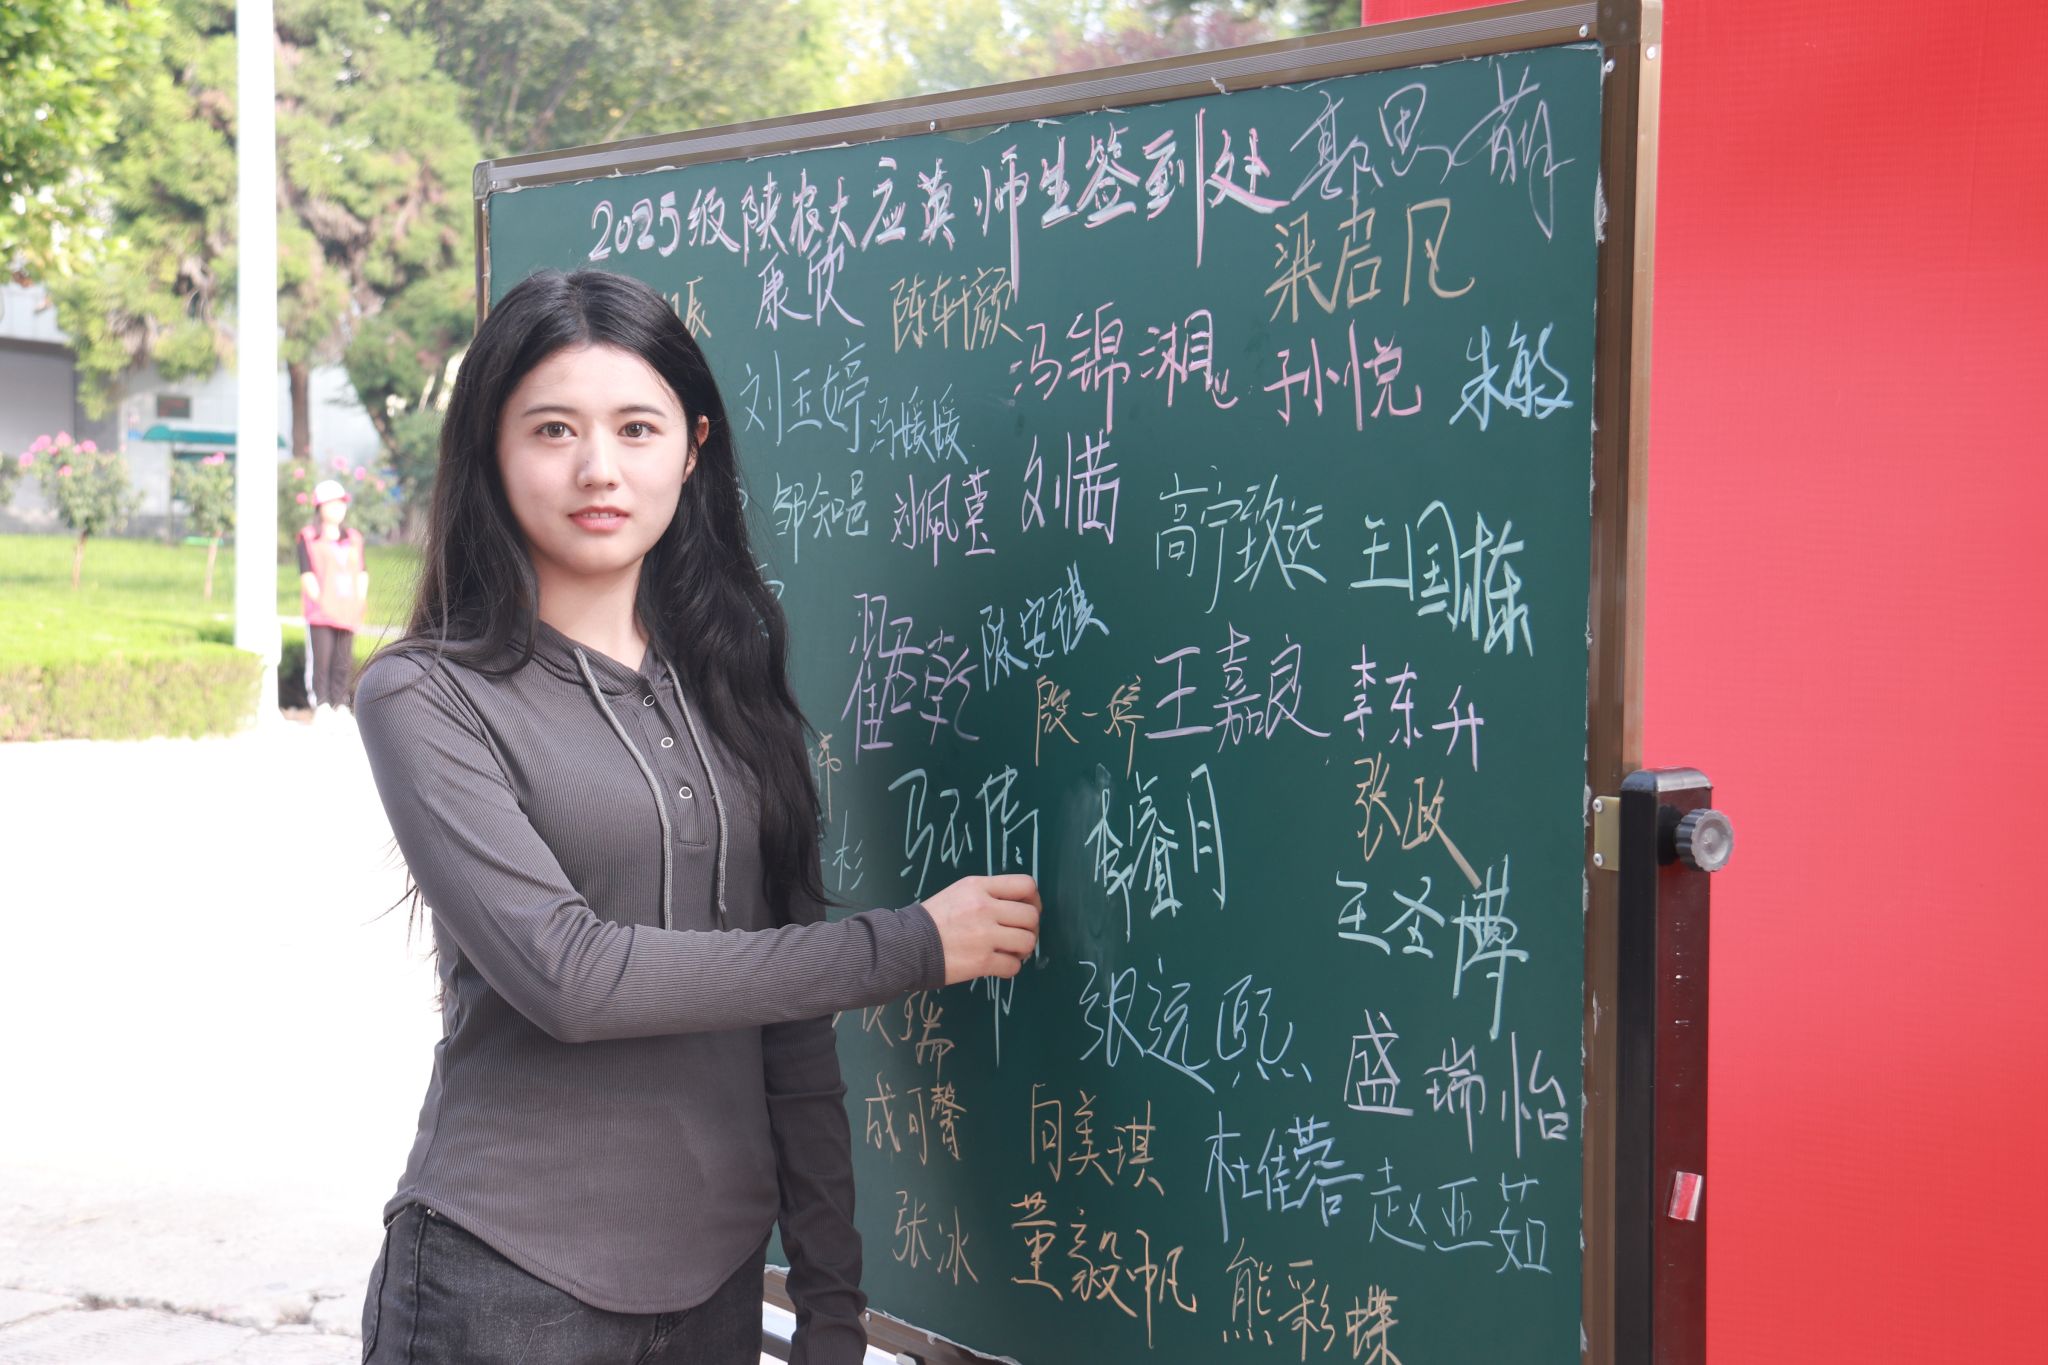 2025级陕农大应英师生签到处
康欣
陈轩颜
梁启凡
刘玉婷
冯媛媛
冯锦湘
孙悦
朱敏
邹知邑
刘佩莹
刘茜
高宁致远
王国栋
翟君乾
陈安琪
殷一婷
王嘉良
李东升
张政
王圣博
张远熙
盛瑞怡
成可馨
闫美琪
杜佳蓉
赵亚茹
张冰
董毅帆
熊彩蝶